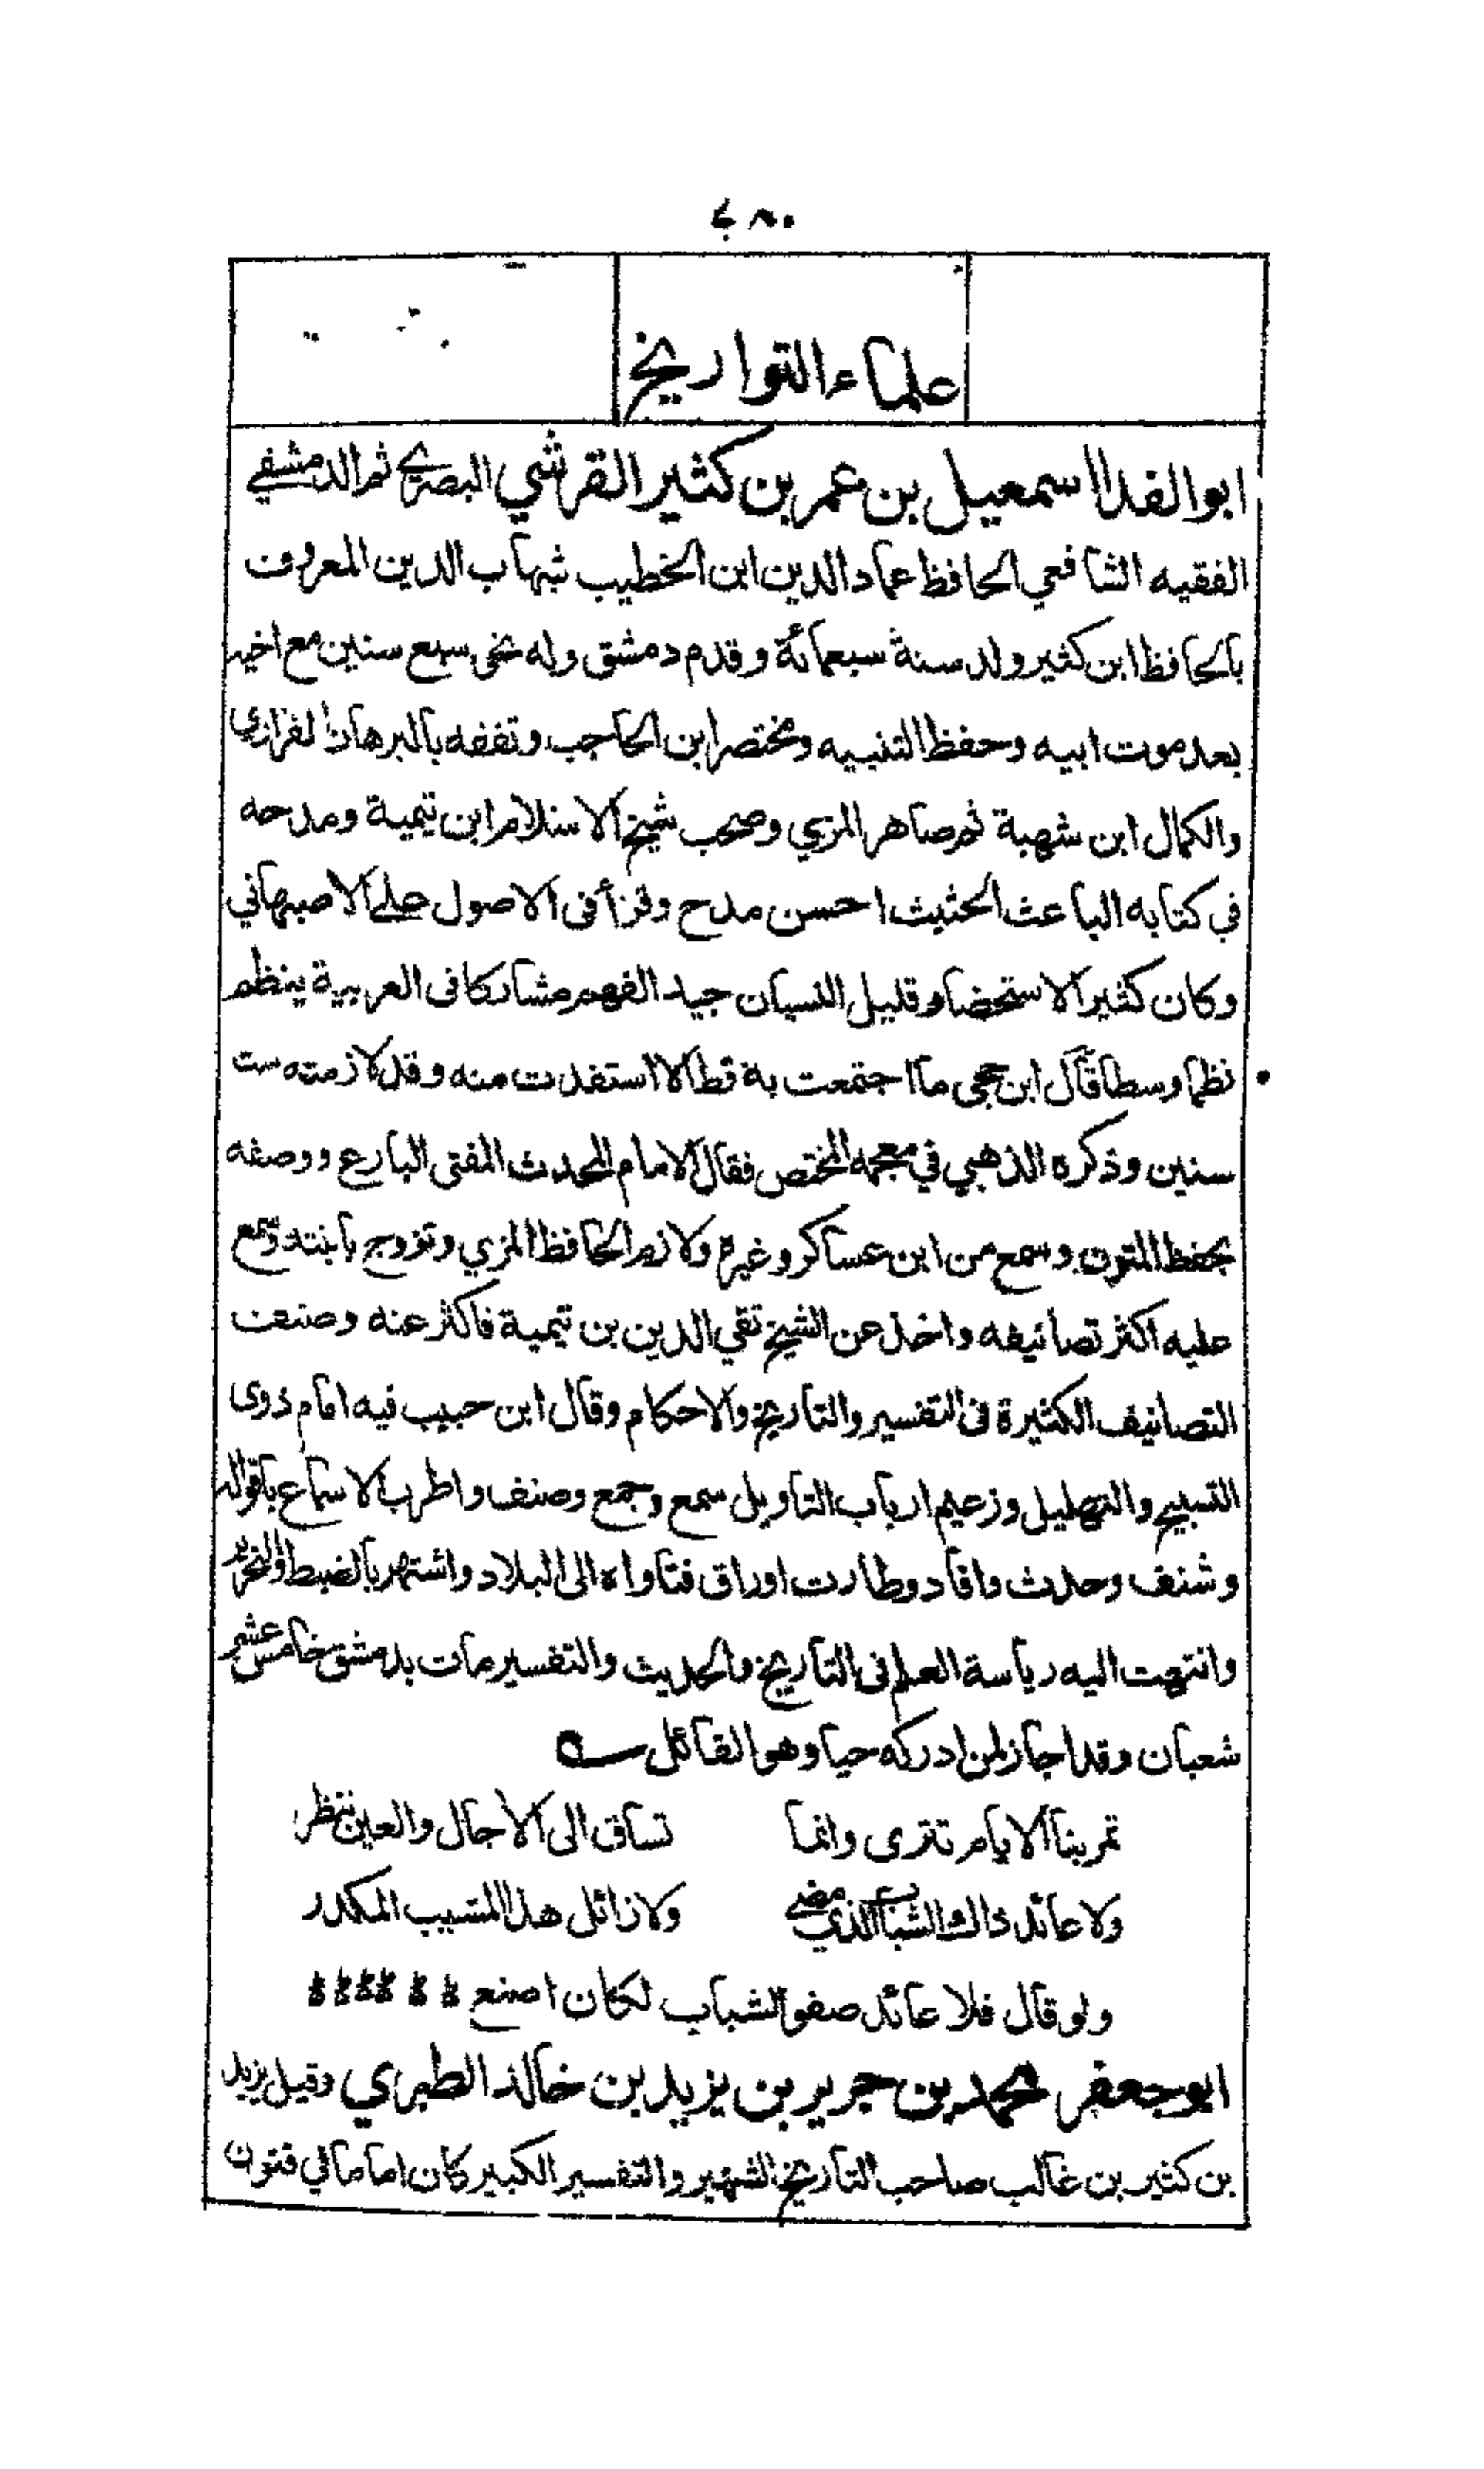 ٧٨٠
علماء التواريخ
ابو الفدا اسمعيل بن عمر بن كثير القرشي البصري ثم الدمشقي
الفقيه الشافعي الحافظ عماد الدين ابن الخطيب شهاب الدين المعروف
بالحافظ ابن كثير ولد سنة سبعمائة وقدم دمشق وله نحى سبع سنين مع اخيه
بعد موت ابيه وحفظ التنبيه ومختصر ابن الحاجب وتفقه بالبرهان الفزازي
والكمال ابن شهبة ثم صاهر المزي وصحب شيخ الاسلام ابن تيمية ومدحه
في كتابه الباعث الحثيث احسن مدح وقرأ فى الاصول على الاصبهاني
وكان كثير الاستحضار قليل النسيان جيد الفهم مشاركا فى العربية ينظم
نظما وسطا قال ابن حجى ما اجتمعت به قط الا استفدت منه وقد لازمته ست
سنين وذكره الذهبي في معجمه المختص فقال الامام المحدث المفتى البارع ووصفه
بحفظ المتون وسمع من ابن عساكر وغيره ولازم الحافظ المزي وتزوج بابنته وسمع
عليه اكثر تصانيفه واخذ عن الشيخ تقي الدين بن تيمية فاكثر عنه وصنف
التصانيف الكثيرة فى التفسير والتاريخ والاحكام وقال ابن حبيب فيه امام ذوى
التسبيح والتهليل وزعيم ارباب التاويل سمع وجمع وصنف واطرب الاسماع باقواله
وشنف وحدث وافاد وطارت اوراق فتاواه الى البلاد واشتهر بالضبط والتحرير
وانتهت اليه رياسة العلم فى التاريخ والحديث والتفسير مات بدمشق خامس عشر
شعبان وقد اجاز لمن ادركه حيا وهو القائل
تمر بنا الايام تترى وانما تساق الى الاجال والعين تنظر
ولا عائد ذاك الشباب الذي مضى ولا زائل هذا المشيب المكدر
ولو قال فلا عائد صفو الشباب لكان اصنع
ابو جعفر محمد بن جرير بن يزيد بن خالد الطبري وقيل يزيد
بن كثير بن غالب صاحب التاريخ الشهير والتفسير الكبير كان اماما في فنون